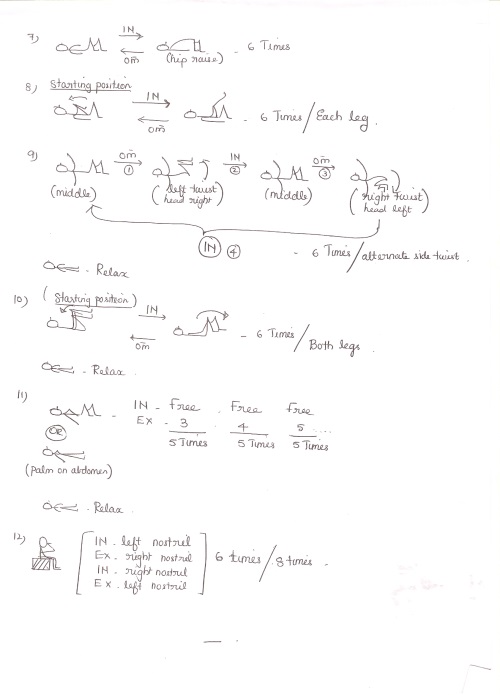 7) IN
om
(hip raise) - 6 Times
8) Starting position
IN
om - 6 Times/Each leg.
9) om IN om
① ② ③
(middle) (left twist head right) (middle) (right twist head left)
IN ④ - 6 Times/alternate side twist.
- Relax
10) (Starting position)
IN
om - 6 Times/Both legs.
- Relax.
11) - IN - Free . Free Free
OR EX - 3 . 4 5 ....
5 Times 5 Times 5 Times
(palm on abdomen)
- Relax
12) IN - left nostril
EX - right nostril
IN - right nostril
EX - left nostril
6 times/8 times -